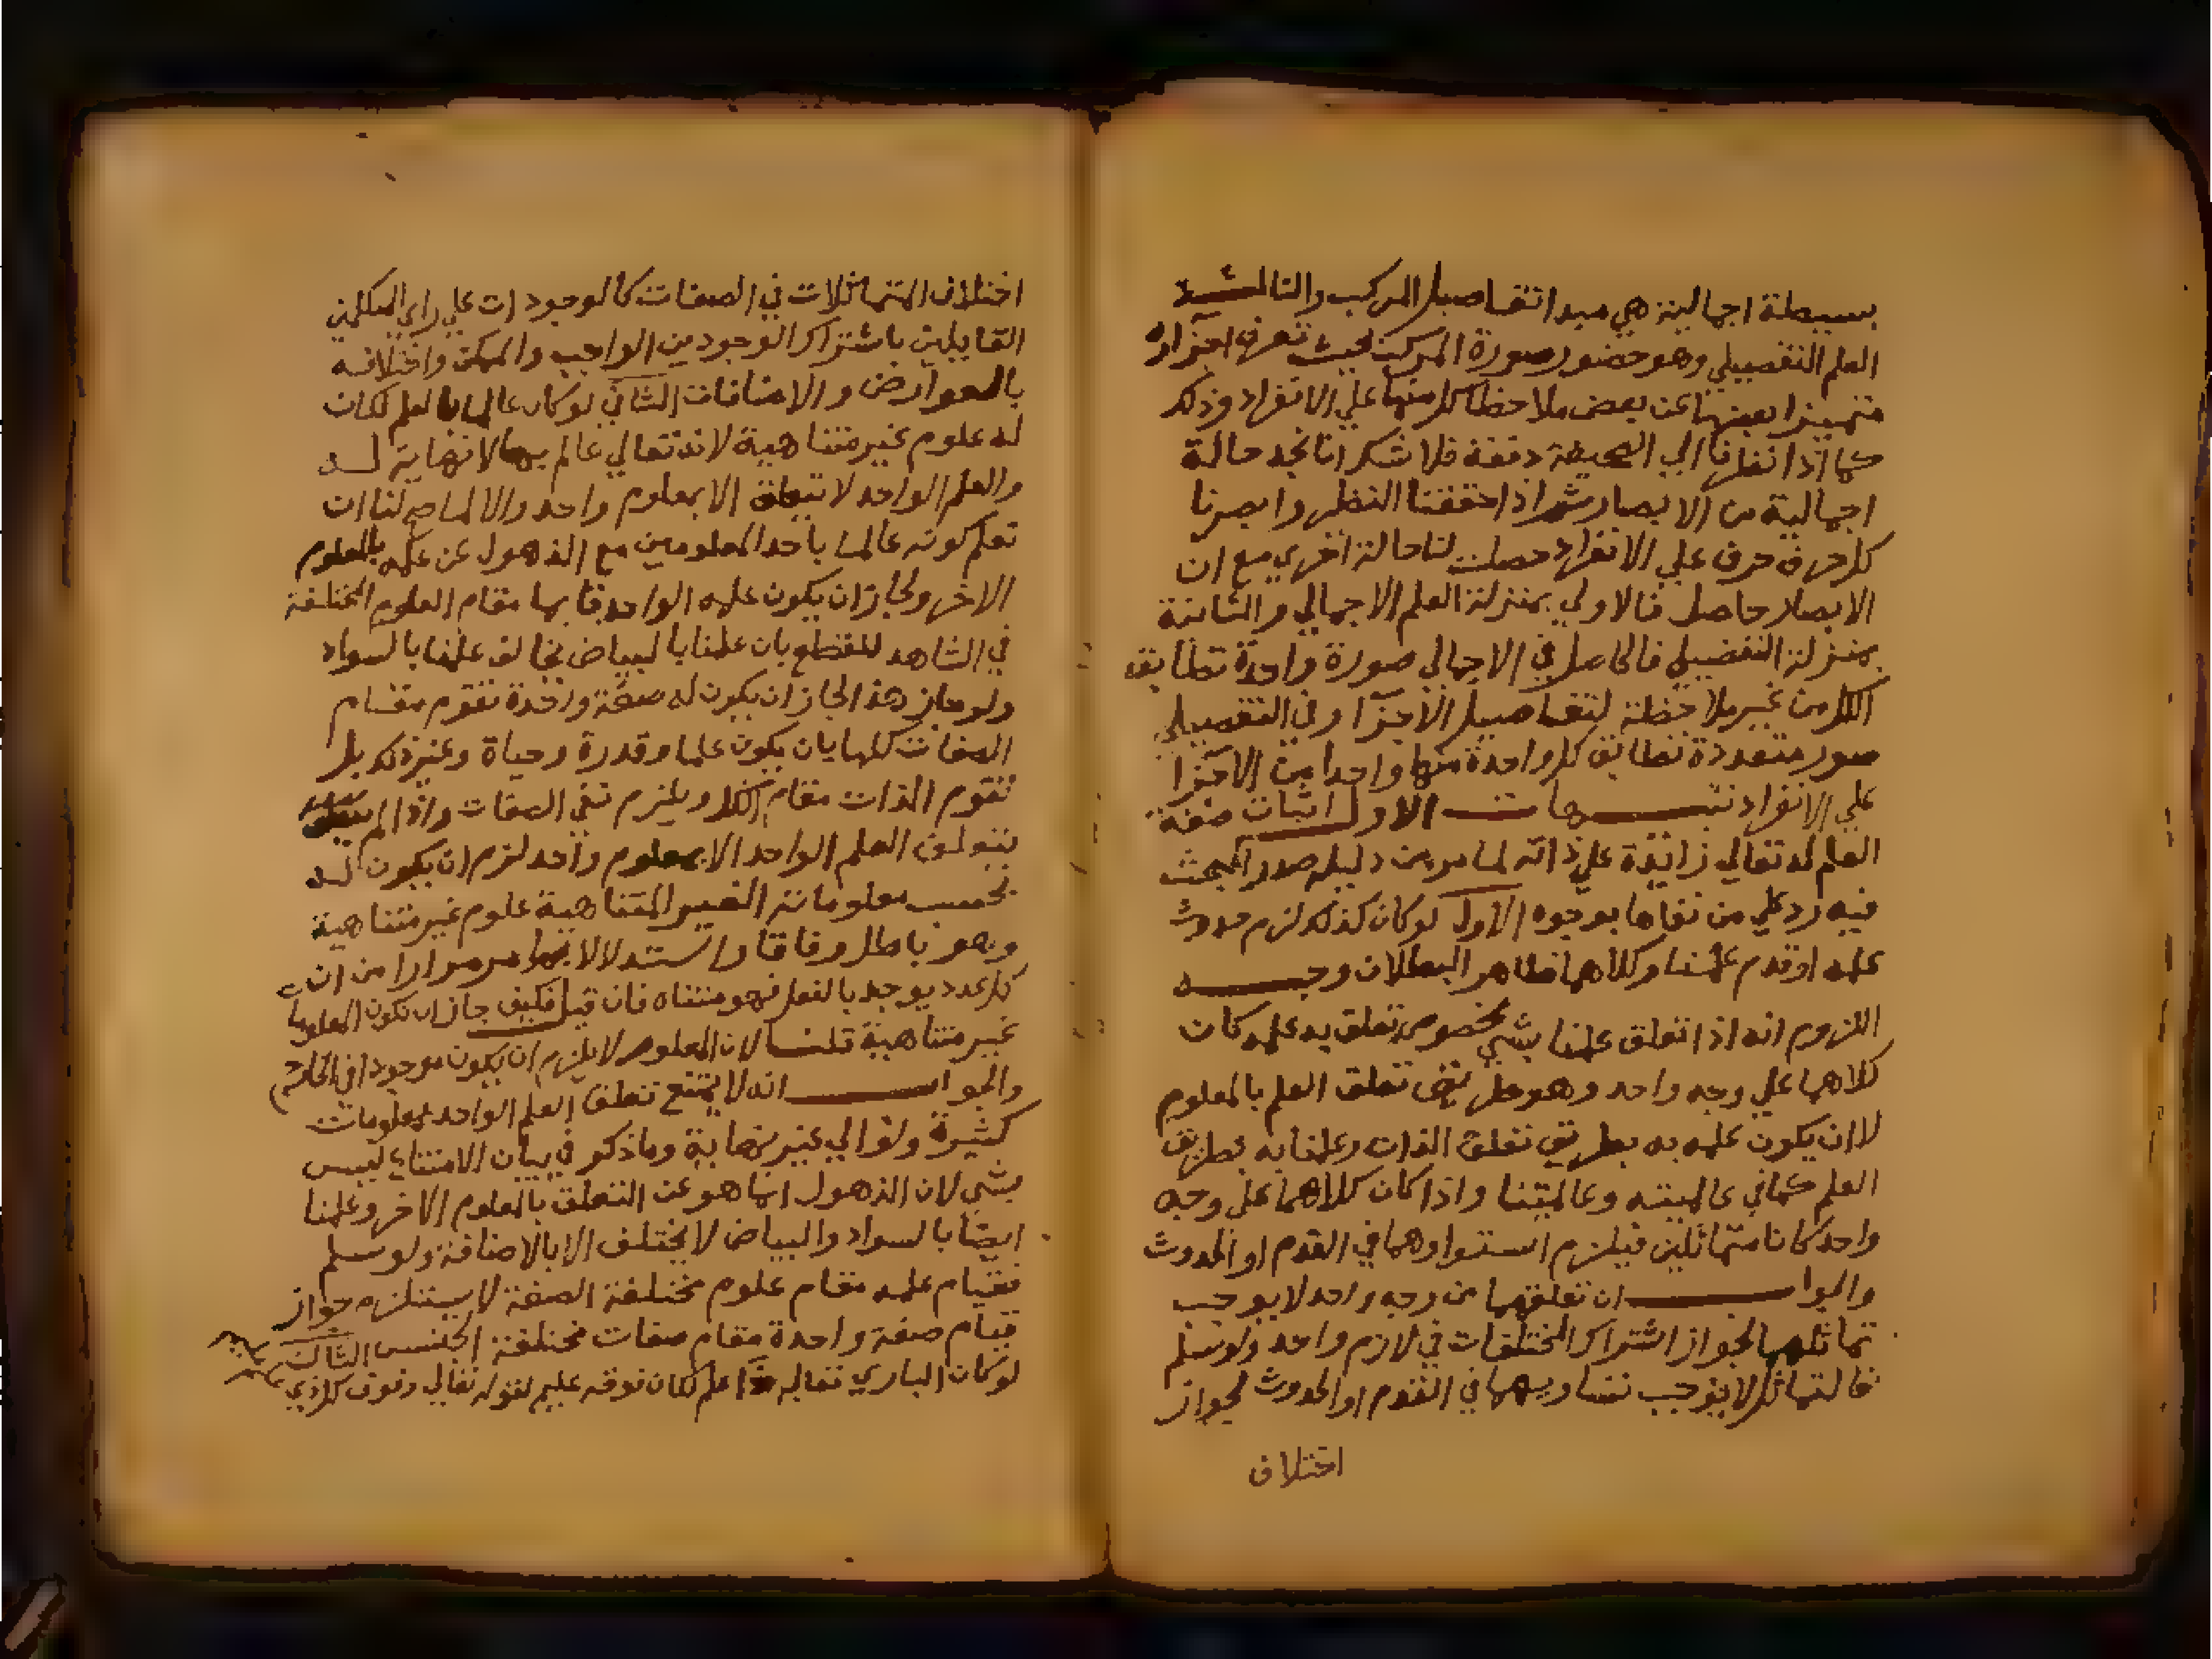 بسيطة اجمالية هي مبدا تفاصيل المركب والثالثة
العلم التفصيلي وهو حضور صورة المركب بحيث تعرف اجزاؤه
متميزا بعضها عن بعض ملاحظا كل منها علي الانفراد وذلك
كما اذا نظرنا الي الصحيفة دفعة فلا شك انا نجد حالة
اجمالية من الابصار ثم اذا حققنا النظر وابصرنا
كل حرف حرف علي الانفراد حصلت لنا حالة اخري مع ان
الابصار حاصل فالاولي بمنزلة العلم الاجمالي والثانية
بمنزلة التفصيلي فالحاصل في الاجمالي صورة واحدة تطابق
الكل من غير ملاحظة لتفاصيل الاجزا وفي التفصيلي
صور متعددة تطابق كل واحدة منها واحدا من الاجزا
علي الانفراد تنبيهات الاول اثبات صفة
العلم له تعالي زايدة علي ذاته لما مر من دليله صدر المبحث
فيه رد علي من نفاها بوجوه الاول لو كان كذلك لزم حدوث
علمه او قدم علمنا وكلاهما ظاهر البطلان وجه
اللزوم انه اذا تعلق علمنا بشي مخصوص تعلق به علمه كان
كلاهما علي وجه واحد وهو طريق تعلق العلم بالمعلوم
لا ان يكون علمه به بطريق تعلق الذات وعلمنا به بطريق
العلم كما في عالميته وعالميتنا واذا كان كلاهما علي وجه
واحد كانا متماثلين فيلزم استواوهما في القدم او الحدوث
والجواب ان تعلقهما من وجه واحد لا يوجب
تماثلهما لجواز اشتراك المختلفات في لازم واحد ولو سلم
فالتماثل لا يوجب تساويهما في القدم او الحدوث لجواز
اختلاف
اختلاف المتماثلات في الصفات كالوجودات علي راي المتكلمين
القايلين باشتراك الوجود بين الواجب والممكن واختلافه
بالعوارض والاضافات الثاني لو كان عالما بالعلم لكان
له علوم غير متناهية لانه تعالي عالم بما لا نهاية له
والعلم الواحد لا يتعلق الا بمعلوم واحد والا لما صح لنا ان
نعلم كونه عالما باحد المعلومين مع الذهول عن علمه بالمعلوم
الاخر ولجاز ان يكون علمه الواحد قايما مقام العلوم المختلفة
في الشاهد للقطع بان علمنا بالبياض يخالف علمنا بالسواد
ولو جاز هذا لجاز ان يكون له صفة واحدة تقوم مقام
الصفات كلها بان يكون علما وقدرة وحياة وغير ذلك بل
تقوم الذات مقام الكل ويلزم نفي الصفات واذا لم
يتعلق العلم الواحد الا بمعلوم واحد لزم ان يكون له
بحسب معلوماته الغير المتناهية علوم غير متناهية
وهو باطل وفاقا واستدلالا بما مر مرارا من ان
كل عدد يوجد بالفعل فهو متناه فان قيل فكيف جاز ان تكون المعلومات
غير متناهية قلنا لان المعلوم لا يلزم ان يكون موجودا في الخارج
والجواب انه لا يمتنع تعلق العلم الواحد بمعلومات
كثيرة ولو الي غير نهاية وما ذكر في بيان الامتناع ليس
بشي لان الذهول انما هو عن التعلق بالمعلوم الاخر وعلمنا
ايضا بالسواد والبياض لا يختلف الا بالاضافة ولو سلم
فقيام علمه مقام علوم مختلفة الصفة لا يستلزم جواز
قيام صفة واحدة مقام صفات مختلفة الجنس الثالث
لو كان الباري تعالي ذا علم لكان فوقه عليم لقوله تعالي وفوق كل ذي